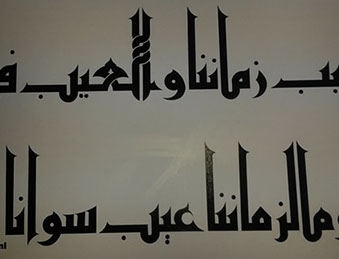 زماننا والعيب
وما لزماننا عيب سوانا